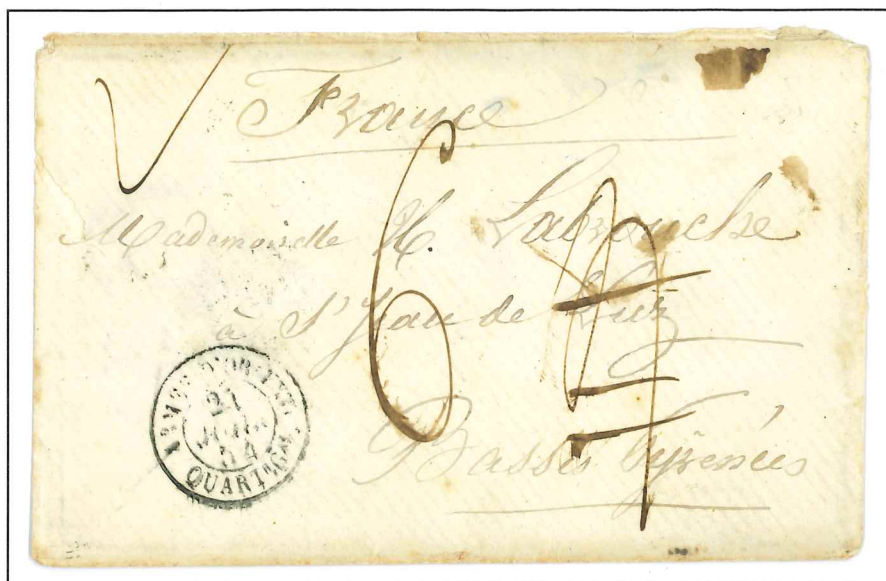 France
6
Mademoiselle H. Labrouche
à St Jean de Luz
Basses Pyrénées
ARMÉE D'ORIENT
21
54
QUART. GAL